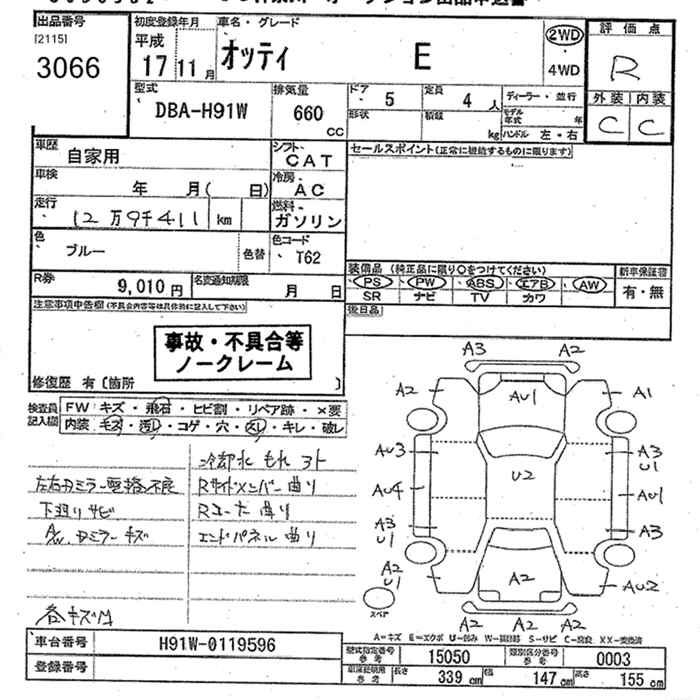 出品番号 初度登録年月 車名・グレード 評価点
[2115] 平成 オッティ E 2WD R
3066 17 11月 4WD
型式 排気量 ドア 5 定員 4 人 ディーラー・並行 外装 内装
DBA-H91W 660 形状 積載 モデル年式 年 C C
CC kg ハンドル 左・右
車歴 自家用 シフト CAT セールスポイント(正常に機能するものに限ります)
車検 年 月( 日) 冷房 AC
走行 12万9千411 km 燃料 ガソリン
色 ブルー 色替 色コード T62
装備品 (純正品に限り○をつけてください) 新車保証書
R券 9,010円 名変通知期限 月 日 PS PW ABS エアB AW 有・無
SR ナビ TV カワ
注意事項申告欄(不具合内容等は具体的に記入して下さい) 後日品
事故・不具合等
ノークレーム
修復歴 有〔箇所 〕
検査員記入欄 FW キズ・飛石・ヒビ割・リペア跡・×要
内装 キズ・汚レ・コゲ・穴・スレ・キレ・破レ
冷却水もれ 3ト
左右カミラー 不良 Rサイドメンバー曲り
下廻りサビ Rコーナー曲り
カミラーキズ エンドパネル曲り
A3 A2
A2 AU1 A1
AU3 A3 U1
U2
AU4 AU1
A3 U1 A3
A2 U1 A2 AU2
スペア
A2 A2 A2
A=キズ E=エクボ U=凹み S=サビ C=腐食 XX=交換済
車台番号 H91W-0119596
型式指定番号 参考 15050 類別区分番号 参考 0003
登録番号
参考 長さ 339 cm 幅 147 cm 高さ 155 cm